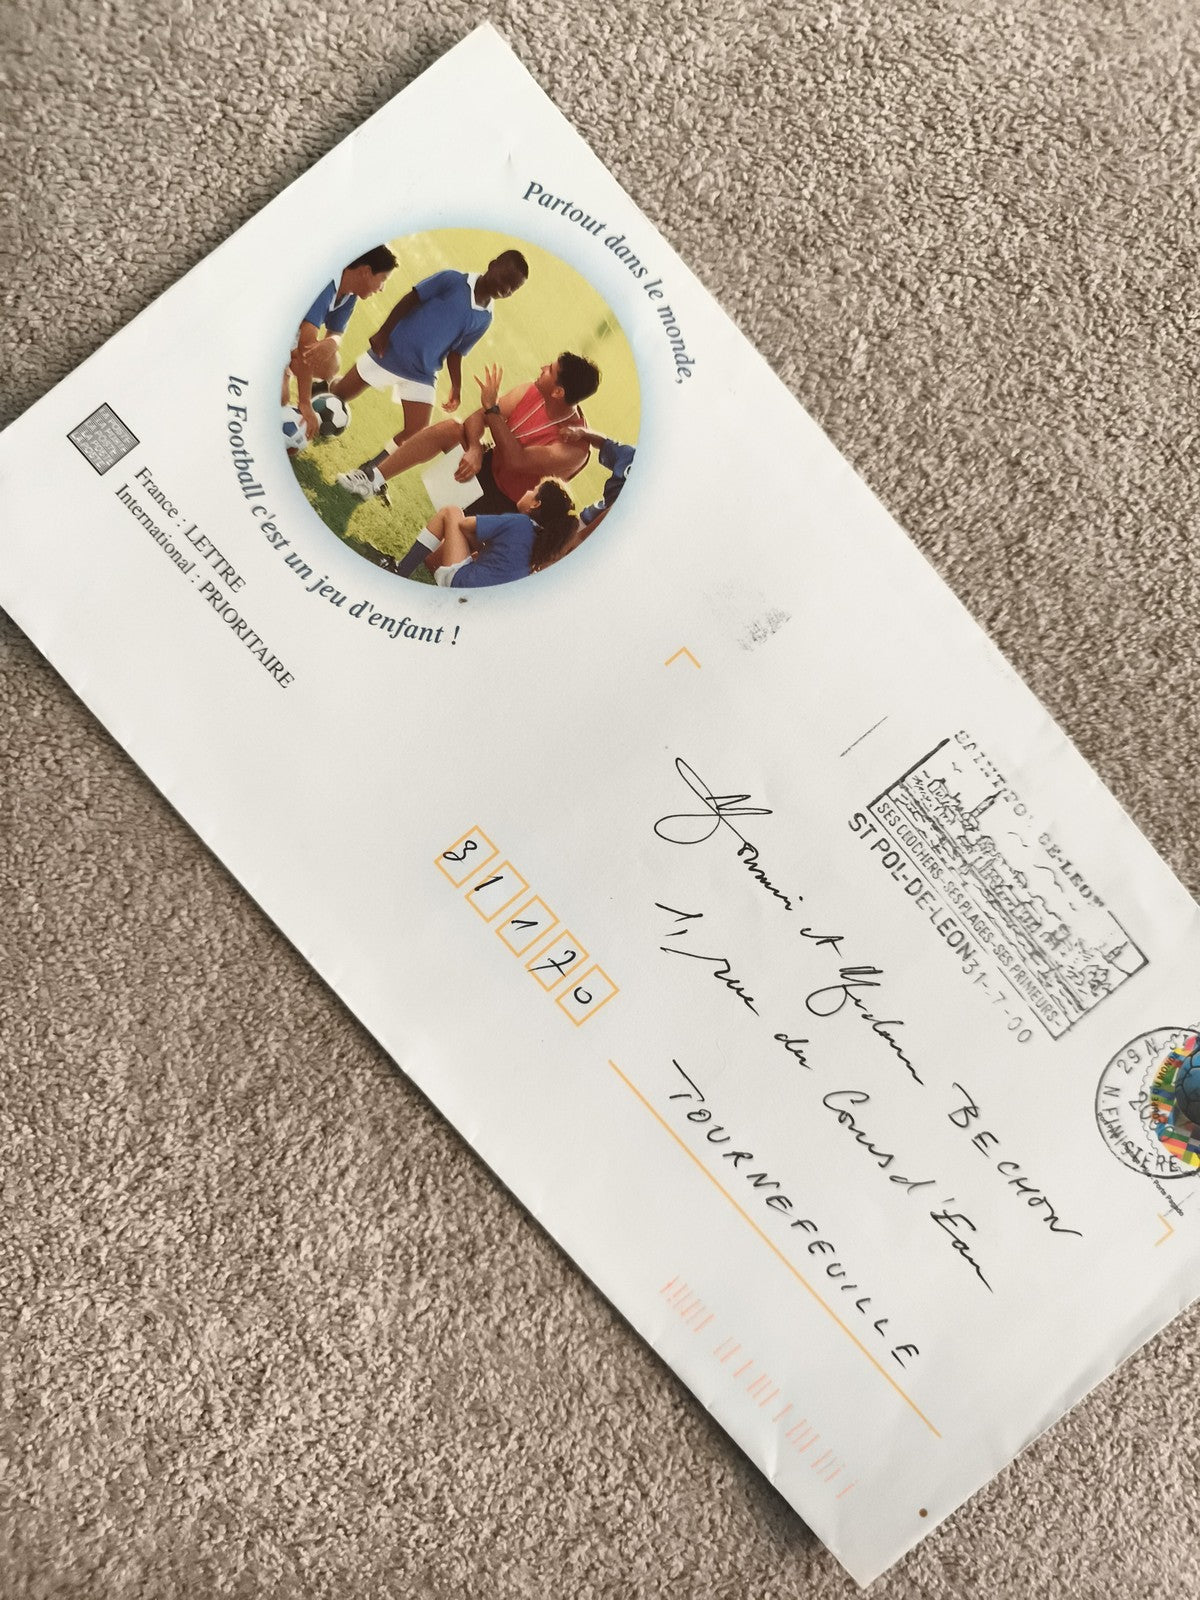 Partout dans le monde,
le Football c'est un jeu d'enfant !
France : LETTRE
International : PRIORITAIRE
SAINT-POL-DE-LEON
SES CLOCHERS - SES PLAGES - SES PRIMEURS -
ST POL-DE-LEON 31-7-00
29 N.ST
N. FINISTERE
Monsieur et Madame BECHON
1, rue du Cours d'Eau
31170
TOURNEFEUILLE